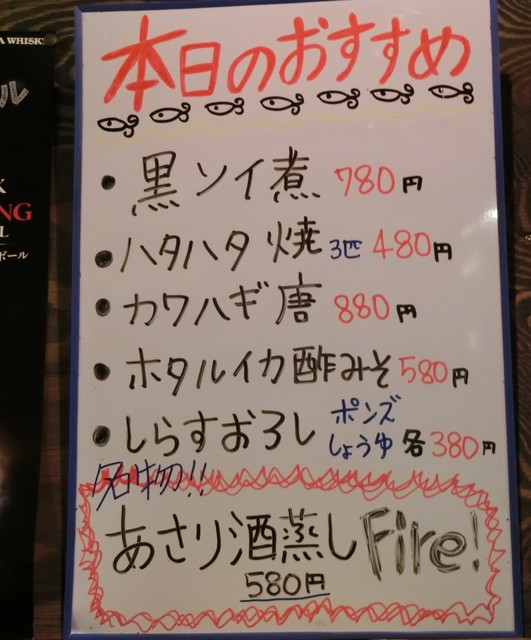 本日のおすすめ
・黒ソイ煮 780円
・ハタハタ焼 3匹 480円
・カワハギ唐 880円
・ホタルイカ酢みそ 580円
・しらすおろし ポンズ しょうゆ 各380円
名物!!
あさり酒蒸し Fire!
580円
A WHISK
ル
K
NG
L
ボール